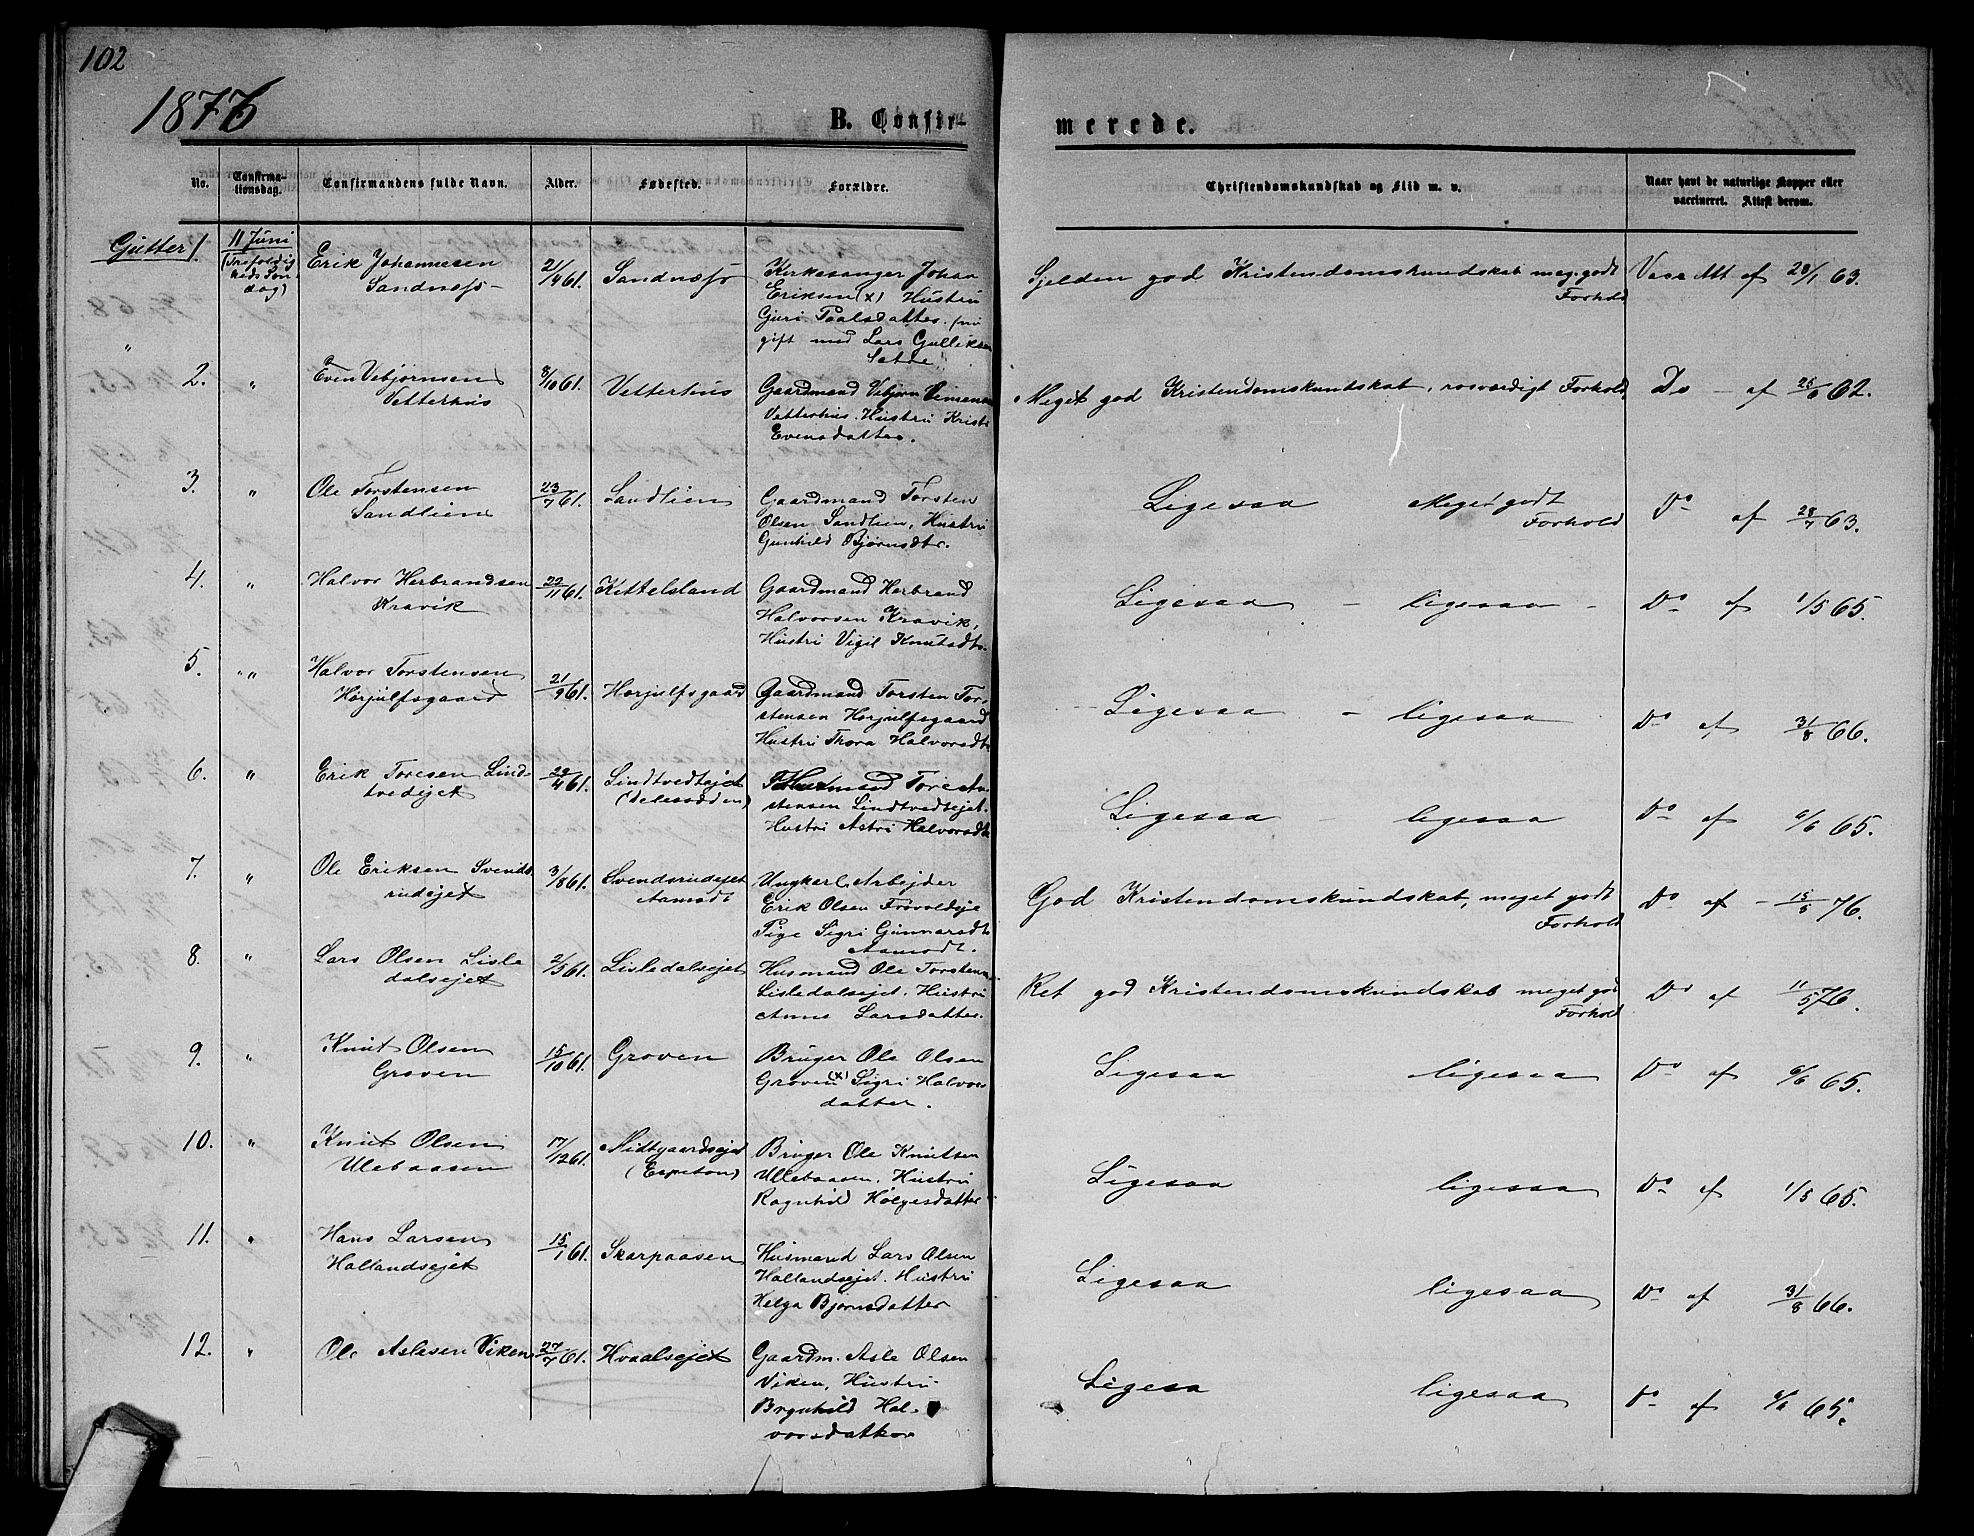 102
1876
B. Confir-
merede.
No.
Confirma-
tionsdag.
Confirmandens fulde Navn.
Alder.
Fødested.
Forældre.
Christendomskundskab og Flid m. v.
Naar havt de naturlige Kopper eller
vaccineret. Attest derom.
Gutter 1.
11 Juni
(Trefoldig
heds Søn
dag)
Erik Johannesen
Sandnæsø-
21/4 61.
Sandnæsø
Kirkesanger Johan
Eriksen (x) Hustru
Guri Paalsdatter. nu
gift med Lars Gulliksen
Sætre.
Sjelden god Kristendomskundskab meg. godt
Forhold
Vacc Att af 28/1 63.
2.
"
Even Vebjørnsen
Vetterhus
8/10 61.
Vetterhus
Gaardmand Vebjørn
Vetterhus. Hustru Kristi
Evensdatter.
Meget god Kristendomskundskab, rosværdigt Forhold
Do - af 62.
3.
"
Ole Torstensen
Sandlien
23/7 61.
Sandlien
Gaardmand Torsten
Olsen Sandlien, Hustru
Gunhild Bjørnsdtr.
Ligesaa Meget godt
Forhold
Do af 28/7 63.
4.
"
Halvor Herbrandsen
Kravik
22/11 61.
Kittelsland
Gaardmand Herbrand
Halvorsen Kravik,
Hustru Vigil Knutsdtr.
Ligesaa - ligesaa -
Do af 1/5 65.
5.
"
Halvor Torstensen
Horjulfsgaard
21/9 61.
Horjulfsgaard
Gaardmand Torsten Tor-
stensen Horjulfsgaard
Hustru Thora Halvorsdtr
Ligesaa - ligesaa
Do af 31/8 66.
6.
"
Erik Toresen Lind-
tvedejet
22/4 61.
Lindtvedtejet
Husmand Tore
stensen Lindtvedtejet.
Hustru Astri Halvorsdtr
Ligesaa - ligesaa
Do af 6/6 65.
7.
"
Ole Eriksen Svends
rudejet
3/8 61.
Svendsrudejet
Aamodt
Ungkarl, Arbejder
Erik Olsen Frøvoldeje
Pige Sigri Gunnarsdtr
Aamodt.
God Kristendomskundskab, meget godt
Forhold
Do af - 15/5 76.
8.
"
Lars Olsen Lisle
dalsejet
2/5 61.
Lisledalsejet
Husmand Ole Torstens
Lisledalsejet. Hustru
Anne Larsdatter.
Ret god Kristendomskundskab meget god
Forhold
Do af 11/5 76.
9.
"
Knut Olsen
Groven
15/10 61.
Groven
Bruger Ole Olsen
Groven (x) Sigri Halvors
datter.
Ligesaa ligesaa
Do af 6/6 65.
10.
"
Knut Olsen
Ulebaasen
17/12 61.
Midtgaardsejet
(Espeton)
Bruger Ole Knutsen
Ullebaasen. Hustru
Ragnhild Holgesdatter
Ligesaa ligesaa
Do af 1/5 65.
11.
"
Hans Larsen
Hallandsejet
15/1 61.
Skarpaasen
Husmand Lars Olsen
Hallandsejet. Hustru
Helga Bjørnsdatter
Ligesaa ligesaa
Do af 31/8 66.
12.
"
Ole Aslesen Viken
27/7 61.
Hvaalsejet
Gaardm. Asle Olsen
Viken, Hustru
Brynhild Hal-
vorsdatter
Ligesa ligesaa
Do af 6/6 65.